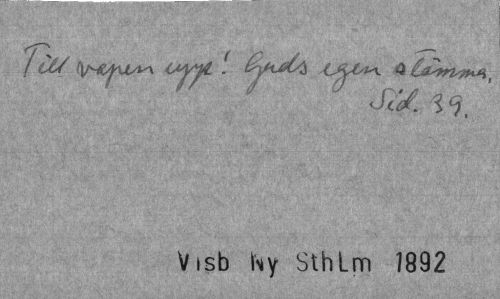 Till vapen upp! Guds egen stämma,
Sid. 39.
Visb Ny SthLm 1892